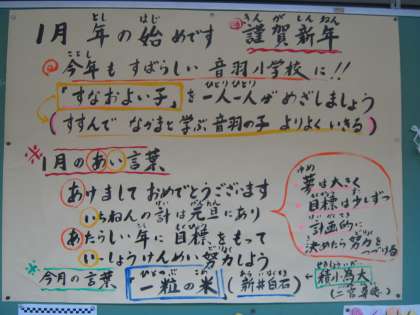 1月 年の始めです 謹賀新年
今年も すばらしい 音羽小学校に!!
「すなおよい子」を 一人一人が めざしましょう
(すすんで なかまと 学ぶ 音羽の子 よりよく いきる)
※1月の あい言葉
あけまして おめでとうございます
いちねんの 計は 元旦にあり
あたらしい 年に 目標を もって
いっしょうけんめい 努力しよう
夢は大きく
目標は少しずつ
計画的に
決めたら努力をつづける
※今月の言葉 「一粒の米」(新井白石) ← 積小為大
(二宮尊徳)